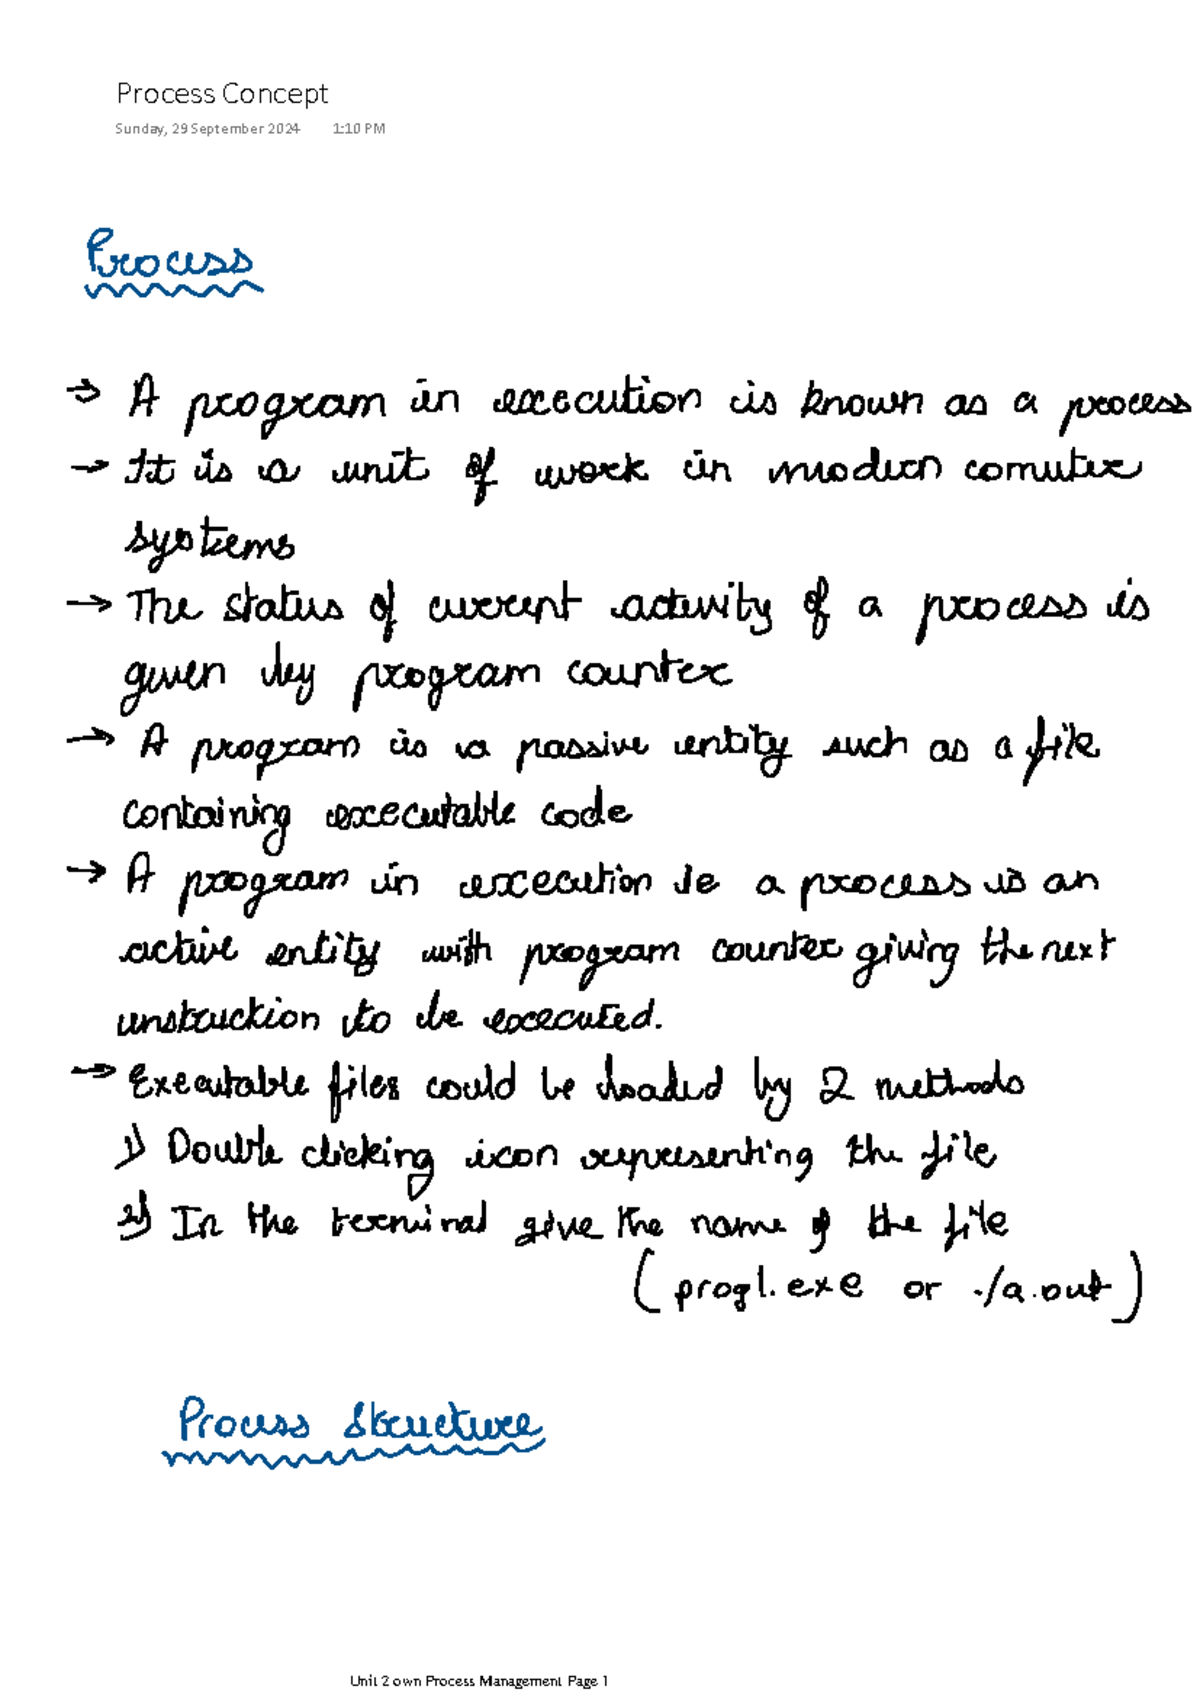 Process Concept
Sunday, 29 September 2024 1:10 PM
Process
→ A program in execution is known as a process
→ It is a unit of work in modern comuter
systems
→ The status of current activity of a process is
given by program counter
→ A program is a passive entity such as a file
containing executable code
→ A program in execution ie a process is an
active entity with program counter giving the next
instruction to be executed.
→ Executable files could be loaded by 2 methods
1) Double clicking icon representing the file
2) In the terminal give the name of the file
(prog1.exe or ./a.out)
Process Structure
Unit 2 own Process Management Page 1